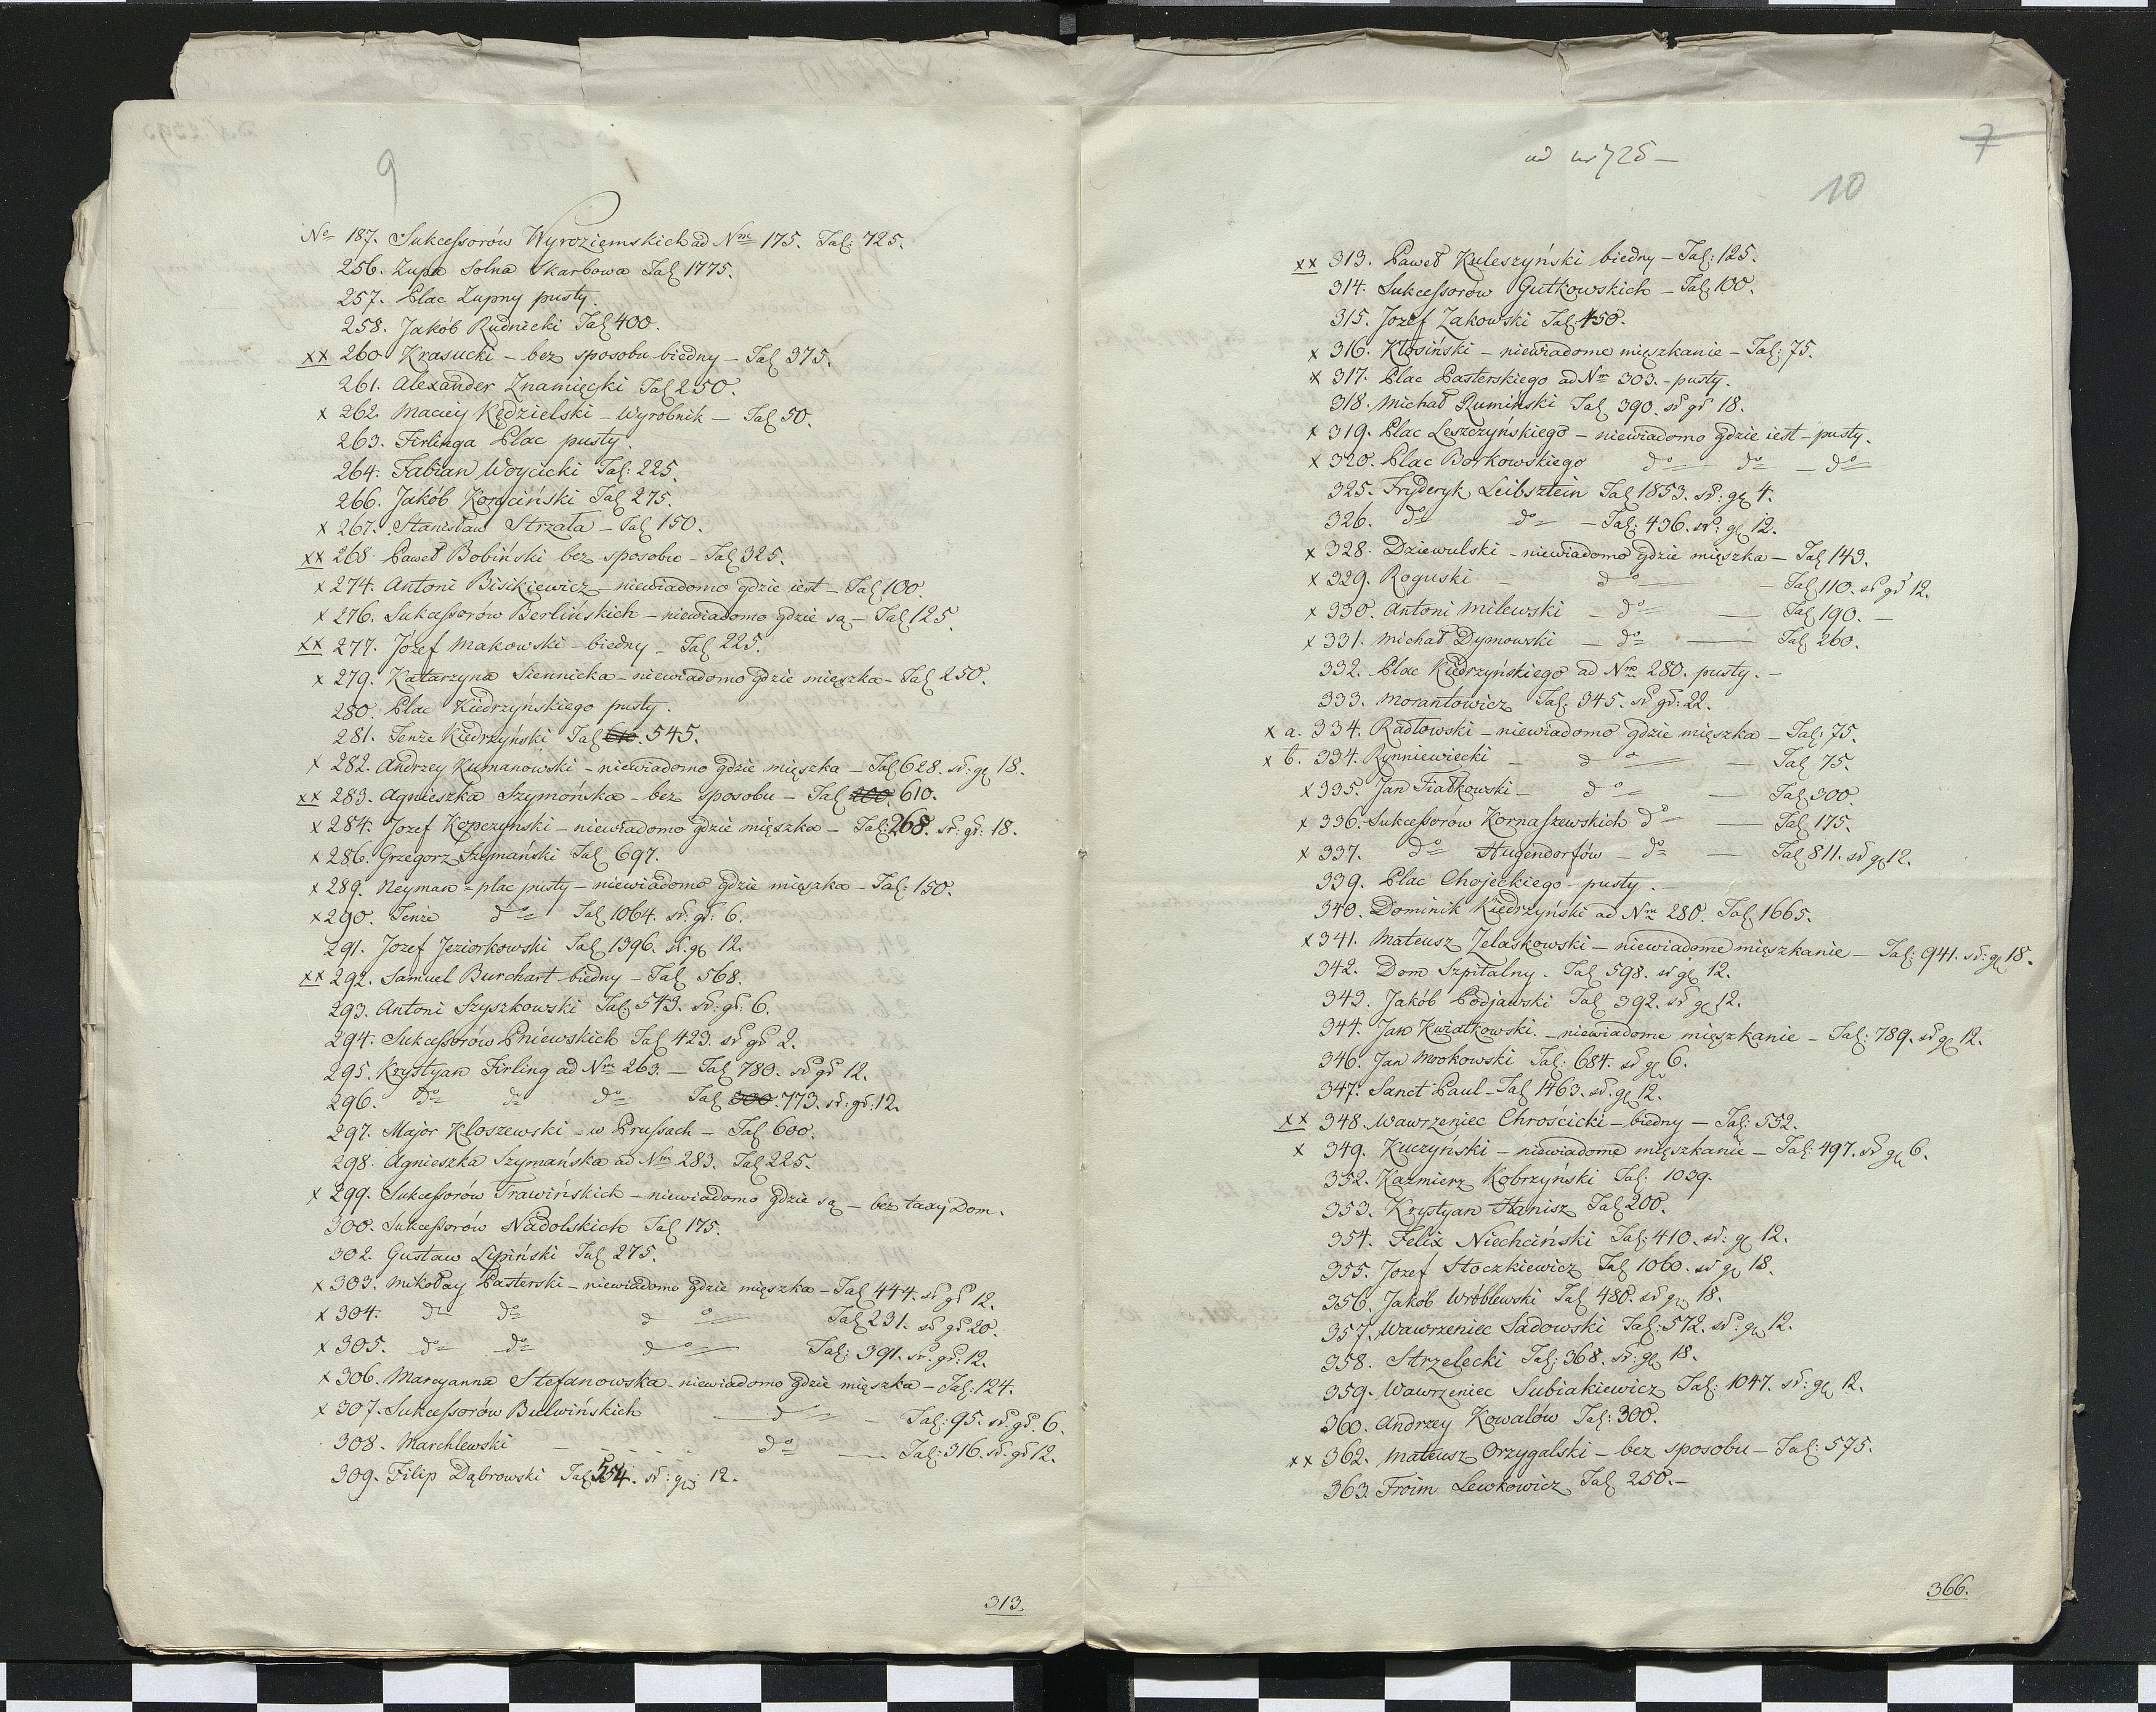 9
No 187. Sukcessorów Wyroziemskich ad Nm 175. Tal: 725.
256. Zupa Solna Skarbowa Tal 1775.
257. Plac Zupny pusty.
258. Jakób Rudnicki Tal 400.
xx 260. Krasucki – bez sposobu biedny – Tal 375.
261. Alexander Znamięcki Tal 250.
x 262. Maciey Kędzielski – Wyrobnik – Tal 50.
263. Firlinga Plac pusty.
264. Fabian Woycicki Tal: 225.
266. Jakób Korociński Tal 275.
x 267. Stanisław Strzała – Tal 150.
xx 268. Paweł Bobiński bez sposobu – Tal 325.
x 274. Antoni Bisikiewicz – niewiadomo gdzie iest – Tal 100.
x 276. Sukcessorów Berlińskich – niewiadomo gdzie są – Tal 125.
xx 277. Józef Makowski – biedny – Tal 225.
x 279. Katarzyna Siennicka – niewiadomo gdzie mięszka – Tal 250.
280. Plac Kiedrzyńskiego pusty.
281. Tenże Kiedrzyński Tal 610. 545.
x 282. Andrzey Kumanowski – niewiadomo gdzie mięszka – Tal 628. sr: gl 18.
xx 283. Agnieszka Szymońska – bez sposobu – Tal 200. 610.
x 284. Jozef Kopczyński – niewiadomo gdzie mięszka – Tal: 268. sr: gr: 18.
x 286. Grzegorz Szymański Tal 697.
x 289. Neyman – plac pusty – niewiadomo gdzie mięszka – Tal: 150.
x 290. Tenże do Tal 1064. sr: gr: 6.
291. Jozef Jeziorkowski Tal 1396. sr. gl 12.
xx 292. Samuel Burchart biedny – Tal 568.
293. Antoni Szyszkowski Tal: 543. sr: gr: 6.
294. Sukcessorów Pniewskich Tal 423. sr gr 2.
295. Krystyan Firling ad Nm 263. – Tal 780. sr gr 12.
296. do do do Tal 300. 773. sr: gr: 12.
297. Major Kloszewski – w Prussach – Tal 600.
298. Agnieszka Szymańska ad Nm 283. Tal 225.
x 299. Sukcessorów Trawińskich – niewiadomo gdzie są – bez taxy Dom.
300. Sukcessorów Nadolskich Tal 175.
302. Gustaw Lipiński Tal 275.
x 303. Mikołay Pasterski – niewiadomo gdzie mięszka – Tal 444. sr gr 12.
x 304. do do do Tal 231. sr gr 20.
x 305. do do do Tal: 391. sr. gr: 12.
x 306. Maryanna Stefanowska – niewiadomo gdzie mięszka – Tal: 124.
x 307. Sukcessorów Bulwińskich – do – Tal: 95. sr. gr. 6.
308. Marchlewski – do – Tal: 316. sr. gr 12.
309. Filip Dąbrowski Tal 554. sr: gr: 12.
313.
ad nr 725 –
7
10
xx 313. Paweł Kuleszyński biedny – Tal: 125.
314. Sukcessorów Gutkowskich – Tal 100.
315. Jozef Zakowski Tal: 450.
x 316. Kłosiński – niewiadome mięszkanie – Tal: 75.
x 317. Plac Pasterskiego ad Nm 303. – pusty.
318. Michał Rumiński Tal 390. sr gr 18.
x 319. Plac Leszczyńskiego – niewiadomo gdzie iest – pusty.
x 320. Plac Borkowskiego do – do – do
325. Fryderyk Leibsztein Tal 1853. sr: gl 4.
326. do do – Tal: 436. sr: gl 12.
x 328. Dziewulski – niewiadomo gdzie mięszka – Tal 143.
x 329. Roguski – do – Tal 110. sr gr 12.
x 330. Antoni Milewski – do – Tal 190. –
x 331. Michał Dymowski – do – Tal 260.
332. Plac Kiedrzyńskiego ad Nm 280. pusty. –
333. Morantowicz Tal: 345. sr gr: 22.
x a. 334. Radłowski – niewiadomo gdzie mięszka – Tal: 75.
x b. 334. Rynniewiecki – do – Tal 75.
x 335. Jan Fiałkowski – do – Tal 300.
x 336. Sukcessorów Kornaszewskich do – Tal 175.
x 337. do Hugendorfów – do – Tal 811. sr gl 12.
339. Plac Chojeckiego – pusty. –
340. Dominik Kiedrzyński ad Nm 280. Tal 1665.
x 341. Mateusz Jelaskowski – niewiadome mięszkanie – Tal: 941. sr: gl 18.
342. Dom Szpitalny. Tal 598. sr gl 12.
343. Jakób Podjawski Tal 392. sr gl 12.
344. Jan Kwiatkowski. – niewiadome mięszkanie – Tal: 789. sr gl 12.
346. Jan Mrokowski Tal: 684. sr gl 6.
347. Sanct Paul – Tal 1463. sr. gl 12.
xx 348. Wawrzeniec Chrościcki – biedny – Tal: 552.
x 349. Kuczyński – niewiadome mięszkanie – Tal: 497. sr gl 6.
352. Kazmierz Kobrzyński Tal: 1039.
353. Krystyan Hanisz Tal 200.
354. Felix Niechciński Tal: 410. sr: gl 12.
355. Jozef Stoczkiewicz Tal 1060. sr gl 18.
356. Jakób Wróblewski Tal 480. sr gl 18.
357. Wawrzeniec Sadowski Tal: 572. sr: gl 12.
358. Strzelecki Tal: 368. sr: gl 18.
359. Wawrzeniec Subiakiewicz Tal: 1047. sr: gl 12.
360. Andrzey Kowalów Tal: 300.
xx 362. Mateusz Orzygalski – bez sposobu – Tal: 575.
363. Froim Lewkowicz Tal 250. –
366.